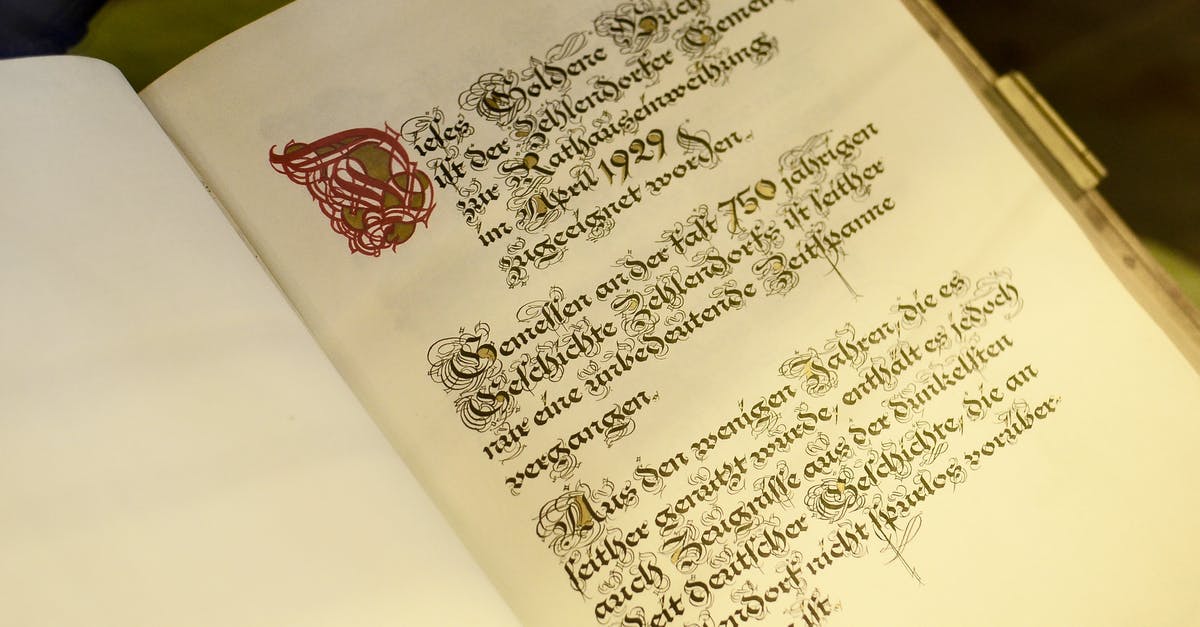 Dieſes Goldene Buch
iſt der Zehlendorfer Gemein
zur Rathauseinweihung
im April 1929
zugeeignet worden.
Gemeſſen an der faſt 750 jährigen
Geſchichte Zehlendorfs iſt ſeither
nur eine unbedeutende Zeitſpanne
vergangen.
Aus den wenigen Jahren, die es
ſeither genutzt wurde, enthält es jedoch
auch Zeugniſſe aus der dunkelſten
Zeit deutſcher Geſchichte, die an
lendorf nicht ſpurlos vorüber-
iſt.